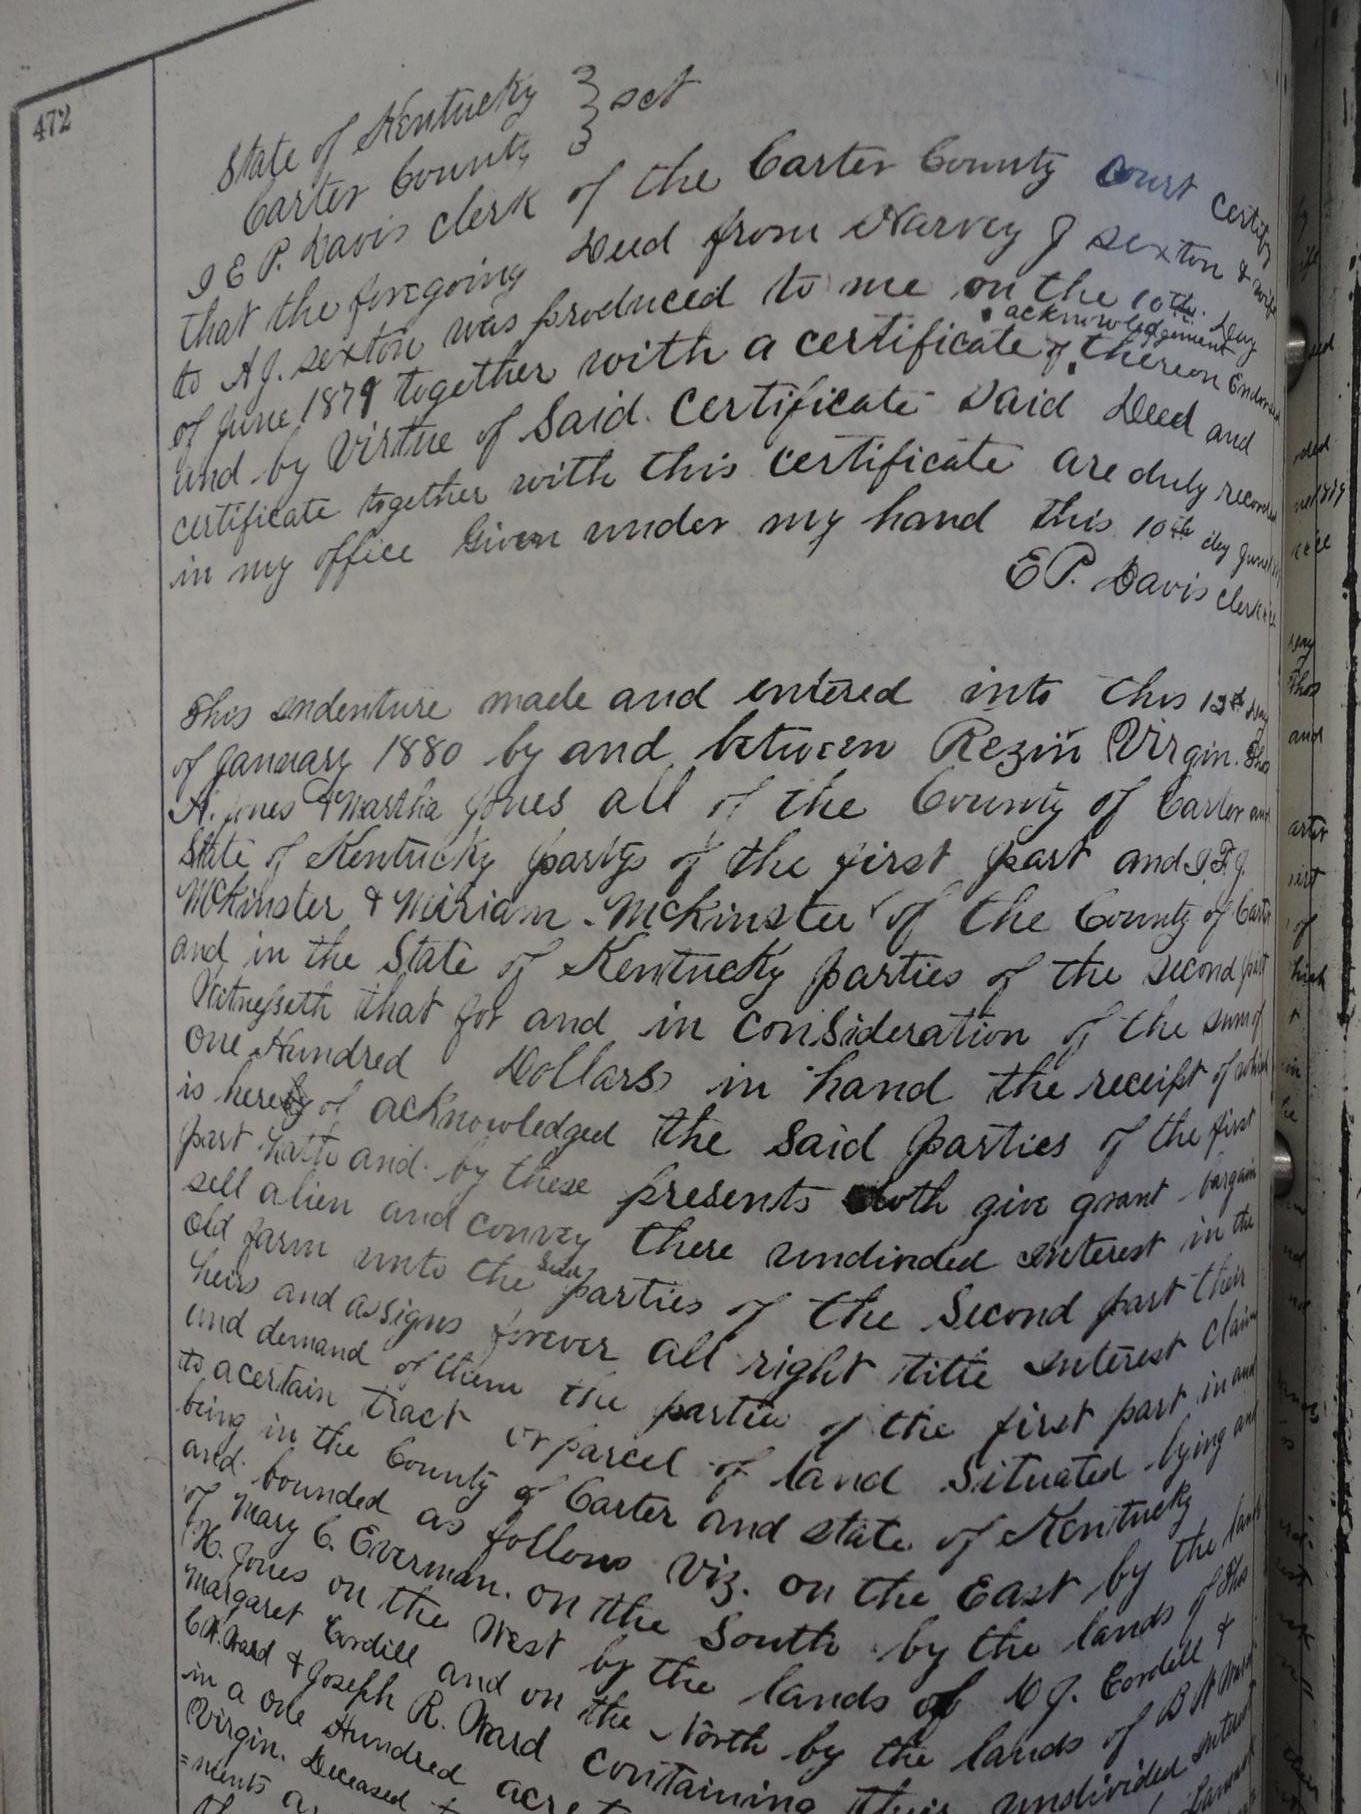 472
State of Kentucky } sct
Carter County
I E P. Davis clerk of the Carter County Court certify
that the foregoing Deed from Harvey J Sexton & wife
to A J. Sexton was produced to me on the 10th. Day
of June 1879 together with a certificate of acknowledgement thereon Endorsed
and by Virtue of Said. Certificate Said Deed and
certificate together with this certificate are duly recorded
in my office Given under my hand this 10th day June
E P. Davis Clerk
This indenture made and entered into this 13th day
of January 1880 by and between Rezin Virgin. Thos
H. Jones & Martha Jones all of the County of Carter and
State of Kentucky partys of the first part and
McKinster & Miriam McKinster of the County of Carter
and in the State of Kentucky parties of the second part
Witnesseth that for and in consideration of the sum of
One Hundred Dollars in hand the receipt of which
is hereby of acknowledged the said parties of the first
part hath and by these presents doth give grant bargain
sell alien and convey there undivided interest in the
old farm unto the said parties of the Second part their
heirs and assigns forever all right title interest claim
and demand of them the partie of the first part in and
to acertain tract or parcel of land situated lying and
being in the County of Carter and state of Kentucky
and bounded as follows Viz. on the East by the lands
of Mary C. Everman. on the South by the lands of Thos
H. Jones on the West by the lands of J. Cordill &
Margaret Cordill and on the North by the lands of B Ward
Ward & Joseph R. Ward containing their undivided interest
in a one Hundred acre
Virgin. Deceased